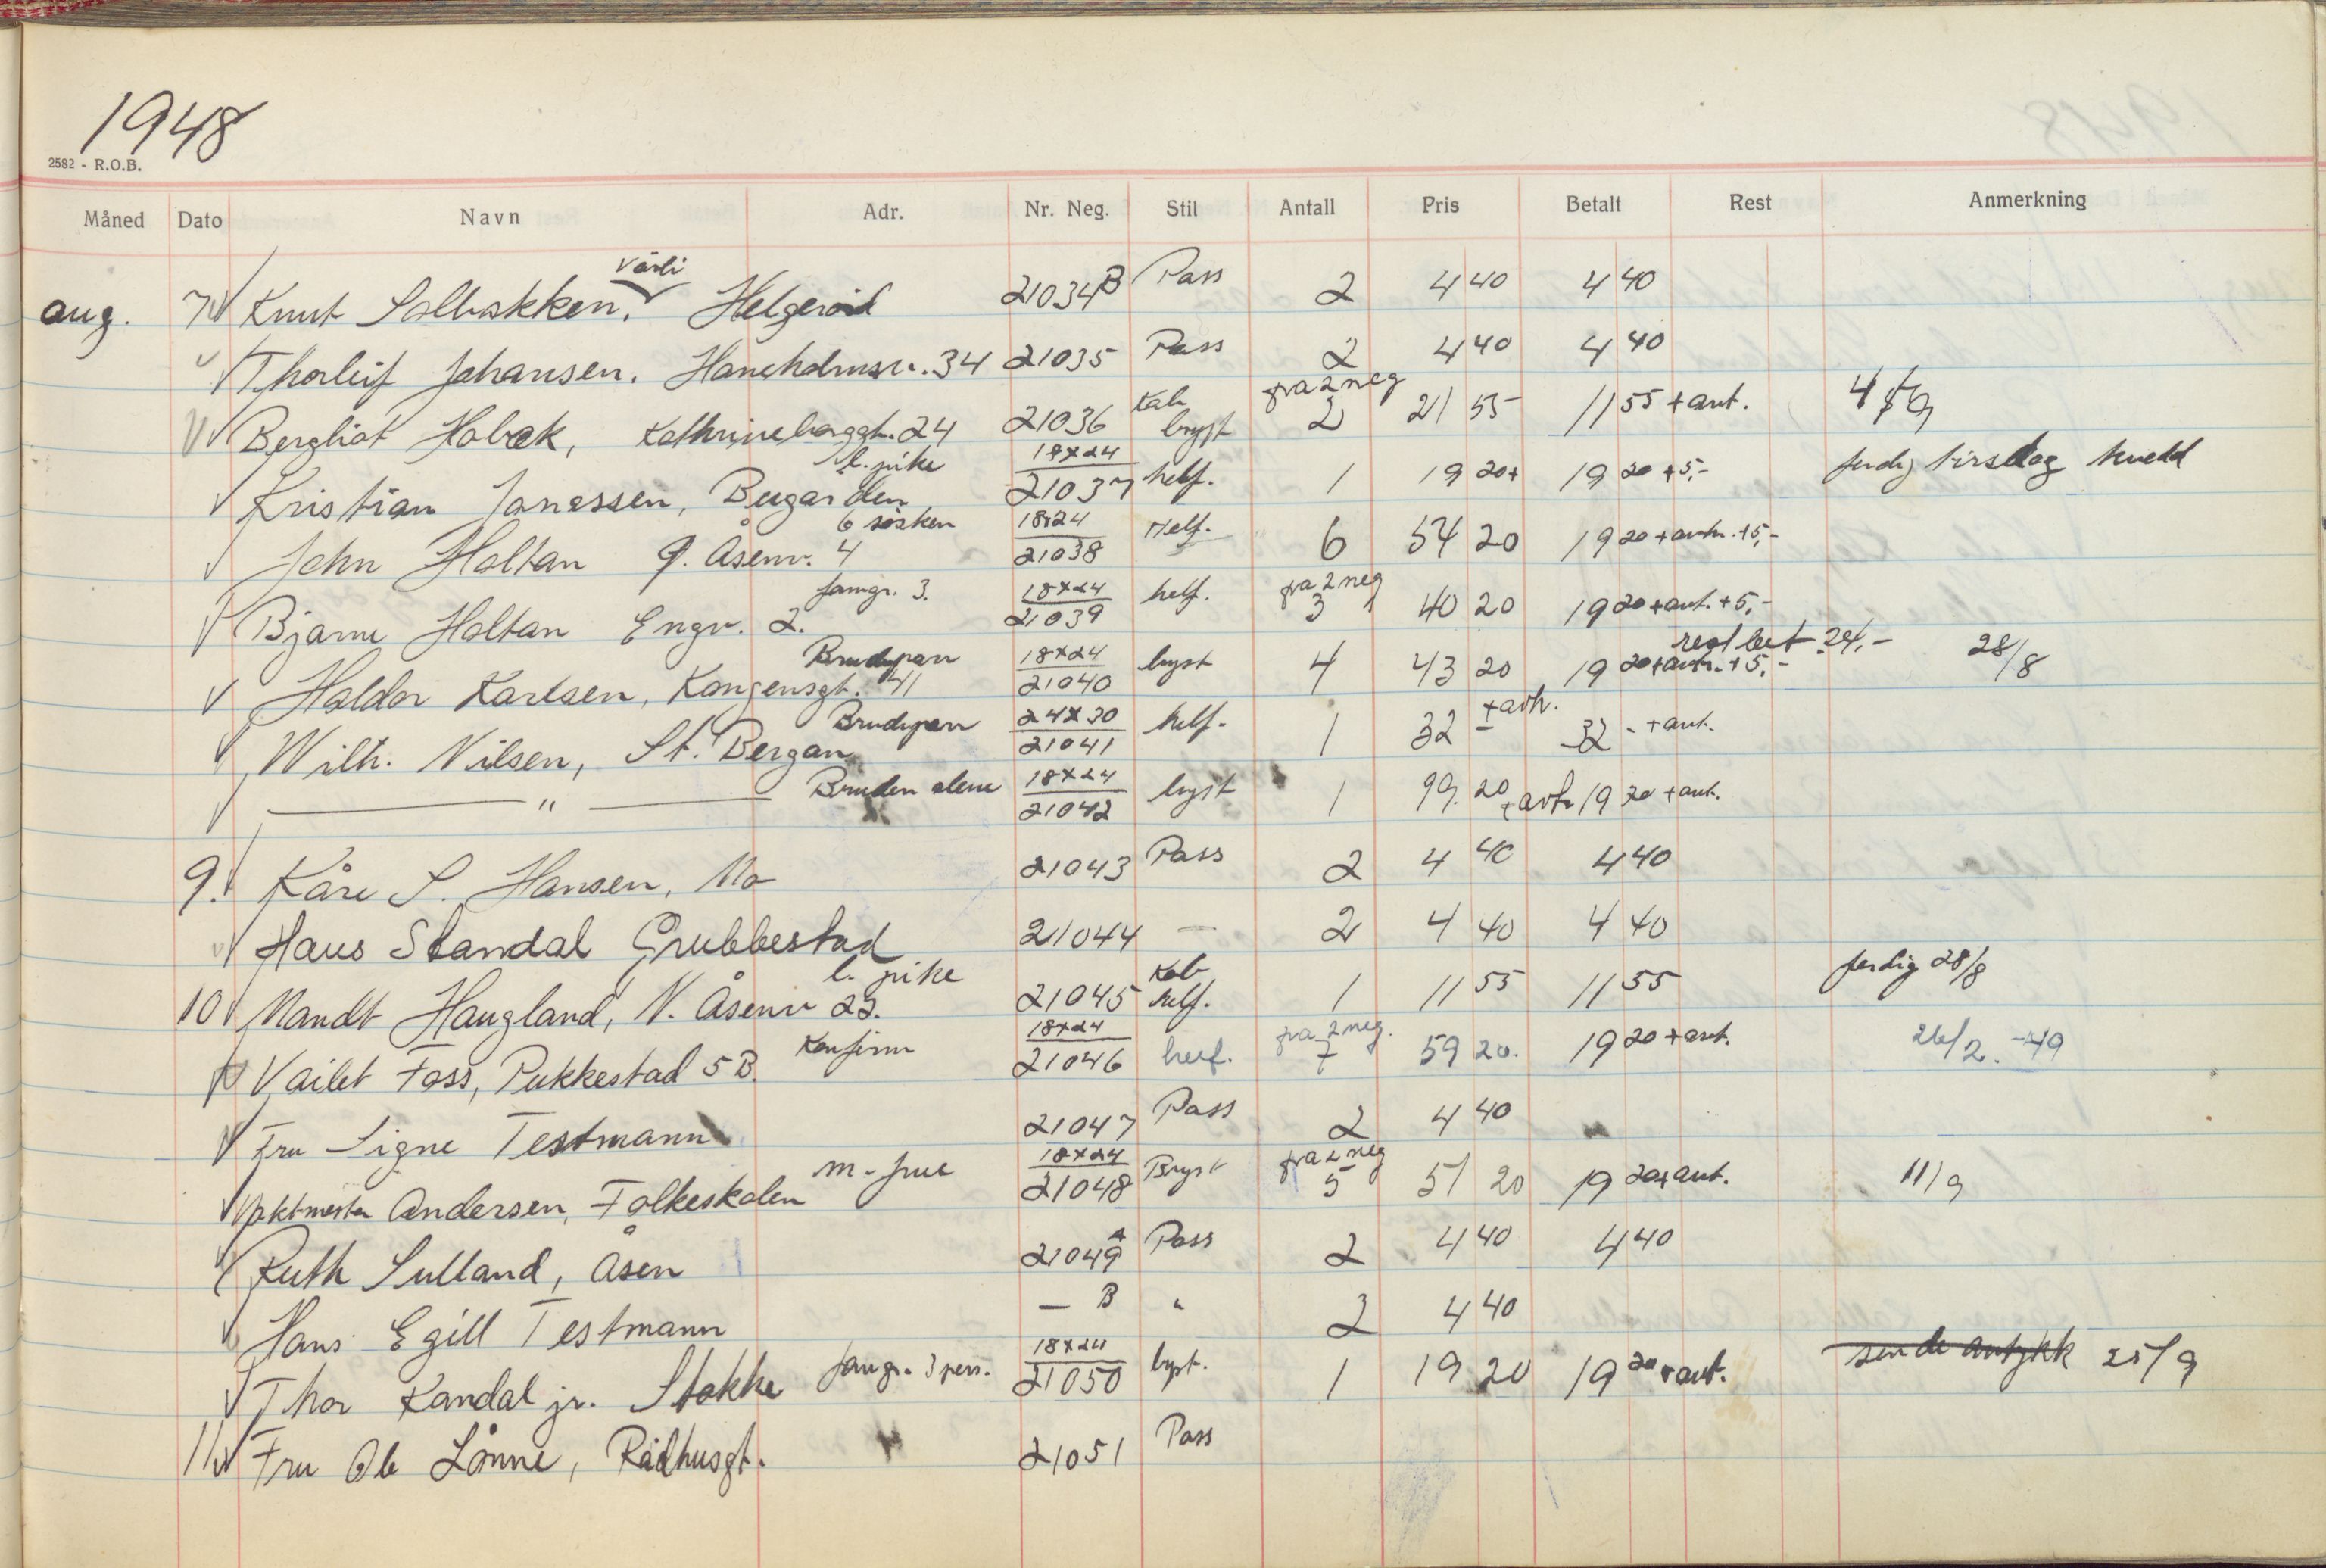 1948
2582 - R.O.B.
Måned Dato Navn Adr. Nr. Neg. Stil Antall Pris Betalt Rest Anmerkning
Vårli
aug. 7 Knut Solbakken, Helgerød 21034B Pass 2 4 40 4 40
Thorleif Johansen. 34 21035 Pass 2 4 40 4 40
Kab fra 2 neg
Bergliot Holbæk, Kathrineborggt. 24 21036 bryst 2 21 55 11 55 + avt.
l. pike 18x24
Kristian Jonassen, Bugården 21037 helf. 1 19 20+ 19 20 +5,- ferdig tirsdag kveld
6 søsken 18x24
John Holtan Ø. Åsenv. 4 21038 Helf. 6 54 20 19 20 + avt. +5,-
famgr. 3. 18x24 fra 2 neg
Bjarne Holtan Engv. 2. 21039 helf. 3 40 20 19 20 + avt. +5,-
Brudepar 18x24 rest bet 24,-
Haldor Karlsen, Kongensgt. 41 21040 bryst 4 43 20 19 20 + avt. +5,- 28/8
Brudepar 24x30 + avt.
Wilh. Nilsen, St. Bergan 21041 helf. 1 32 - 32 - + avt.
Bruden alene 18x24
— " — 21042 bryst 1 19. 20 + avt. 19 20 + avt.
9. Kåre S. Hansen, Mo 21043 Pass 2 4 40 4 40
Hans Standal Grubbestad 21044 — 2 4 40 4 40
l. pike Kab ferdig 28/8
10 Mandt Haugland, N. Åsenv 22. 21045 helf. 1 11 55 11 55
Konfirm 18x24 fra 2 neg.
Vailet Foss, Pukkestad 5 B. 21046 helf. 7 59 20. 19 20 + avt. 26/2. -49
Fru Signe Testmann 21047 Pass 2 4 40
m. frue 18x24 fra 2 neg
Andersen, Folkeskolen 21048 Bryst 5 51 20 19 20 + avt. 11/9
Ruth Sulland, Åsen 21049 A Pass 2 4 40 4 40
Hans Egill Testmann — B " 2 4 40
famgr. 3 pers. 18x24
Thor Kandal jr. Stokke 21050 byst. 1 19 20 19 20 + avt. 25/9
11 Fru Ole Lønne, Rådhusgt. 21051 Pass